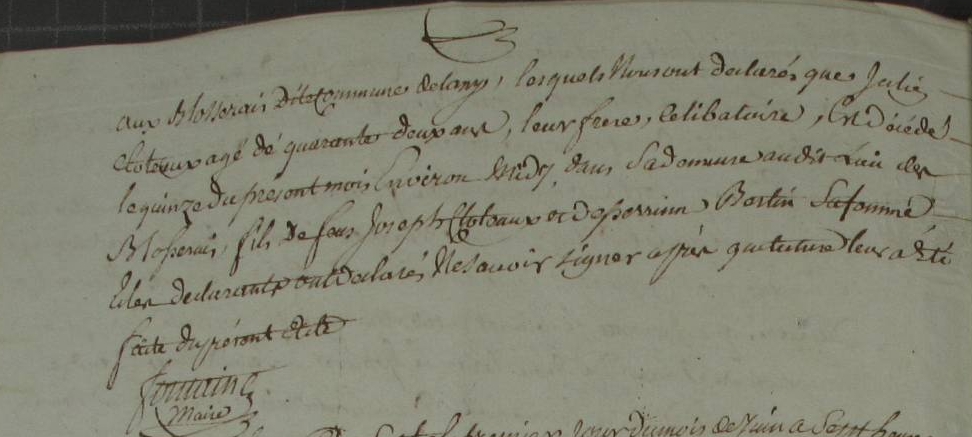 aux Blosserais Dite Commune delany, lesquels Nous ont declarés que Julien
Etoteaux agé de quarante deux ans, leur frere, celibataire, Est Décédé
le quinze du present mois Environ Midy, dans Sa demeure audit Lieu des
Blosserais, fils de feu Joseph Etoteaux et de Perrinne Bertin Sa femme
Et les declarants ont Declarés Ne Savoir signer aprés que lecture leur a Eté
faite du présent acte
Maire
premier jour du mois de Juin a Sept heures